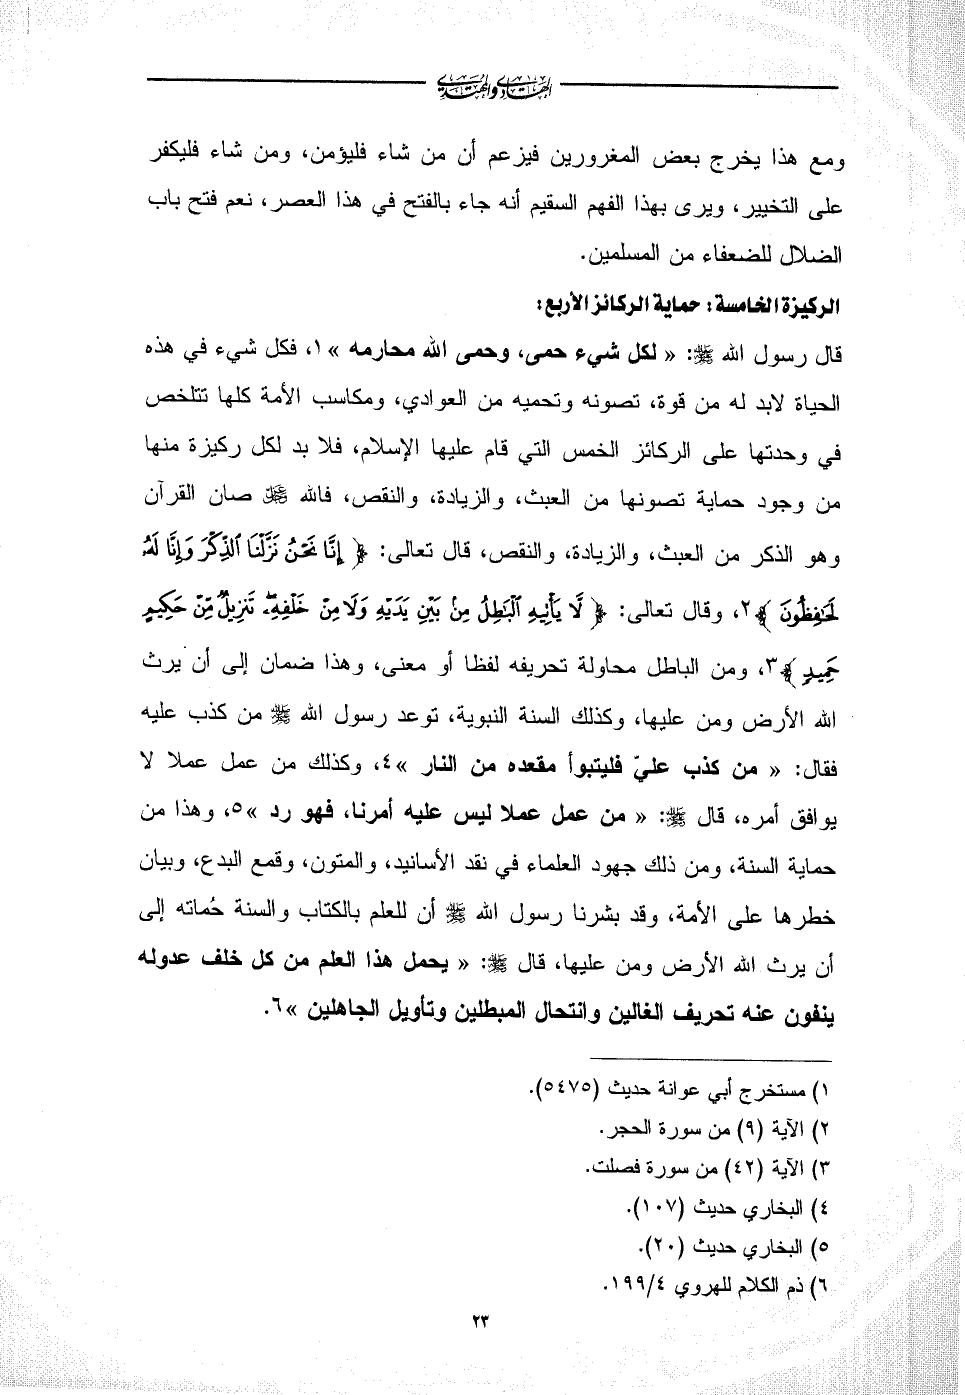 الهادي والمهتدي
ومع هذا يخرج بعض المغرورين فيزعم أن من شاء فليؤمن، ومن شاء فليكفر
على التخيير، ويرى بهذا الفهم السقيم أنه جاء بالفتح في هذا العصر، نعم فتح باب
الضلال للضعفاء من المسلمين.
الركيزة الخامسة: حماية الركائز الأربع:
قال رسول الله ﷺ: « لكل شيء حمى، وحمى الله محارمه »١، فكل شيء في هذه
الحياة لابد له من قوة، تصونه وتحميه من العوادي، ومكاسب الأمة كلها تتلخص
في وحدتها على الركائز الخمس التي قام عليها الإسلام، فلا بد لكل ركيزة منها
من وجود حماية تصونها من العبث، والزيادة، والنقص، فالله ﷻ صان القرآن
وهو الذكر من العبث، والزيادة، والنقص، قال تعالى: ﴿ إِنَّا نَحْنُ نَزَّلْنَا ٱلذِّكْرَ وَإِنَّا لَهُۥ
لَحَٰفِظُونَ ﴾٢، وقال تعالى: ﴿ لَّا يَأْتِيهِ ٱلْبَٰطِلُ مِنۢ بَيْنِ يَدَيْهِ وَلَا مِنْ خَلْفِهِۦ ۖ تَنزِيلٌ مِّنْ حَكِيمٍ
حَمِيدٍ ﴾٣، ومن الباطل محاولة تحريفه لفظا أو معنى، وهذا ضمان إلى أن يرث
الله الأرض ومن عليها، وكذلك السنة النبوية، توعد رسول الله ﷺ من كذب عليه
فقال: « من كذب عليّ فليتبوأ مقعده من النار »٤، وكذلك من عمل عملا لا
يوافق أمره، قال ﷺ: « من عمل عملا ليس عليه أمرنا، فهو رد »٥، وهذا من
حماية السنة، ومن ذلك جهود العلماء في نقد الأسانيد، والمتون، وقمع البدع، وبيان
خطرها على الأمة، وقد بشرنا رسول الله ﷺ أن للعلم بالكتاب والسنة حُماته إلى
أن يرث الله الأرض ومن عليها، قال ﷺ: « يحمل هذا العلم من كل خلف عدوله
ينفون عنه تحريف الغالين وانتحال المبطلين وتأويل الجاهلين »٦.
١) مستخرج أبي عوانة حديث (٥٤٧٥).
٢) الآية (٩) من سورة الحجر.
٣) الآية (٤٢) من سورة فصلت.
٤) البخاري حديث (١٠٧).
٥) البخاري حديث (٢٠).
٦) ذم الكلام للهروي ١٩٩/٤.
٢٣